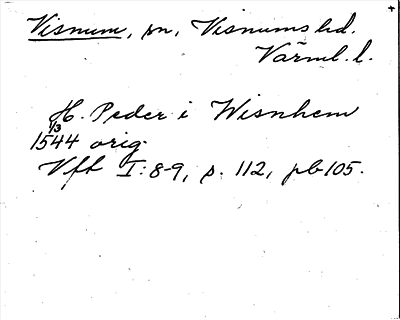 Visnum, sn, Visnums hd.
Värml. l.
H. Peder i Wisnhem
1/3
1544 orig.
Vft I:8-9, s. 112, pb 105.